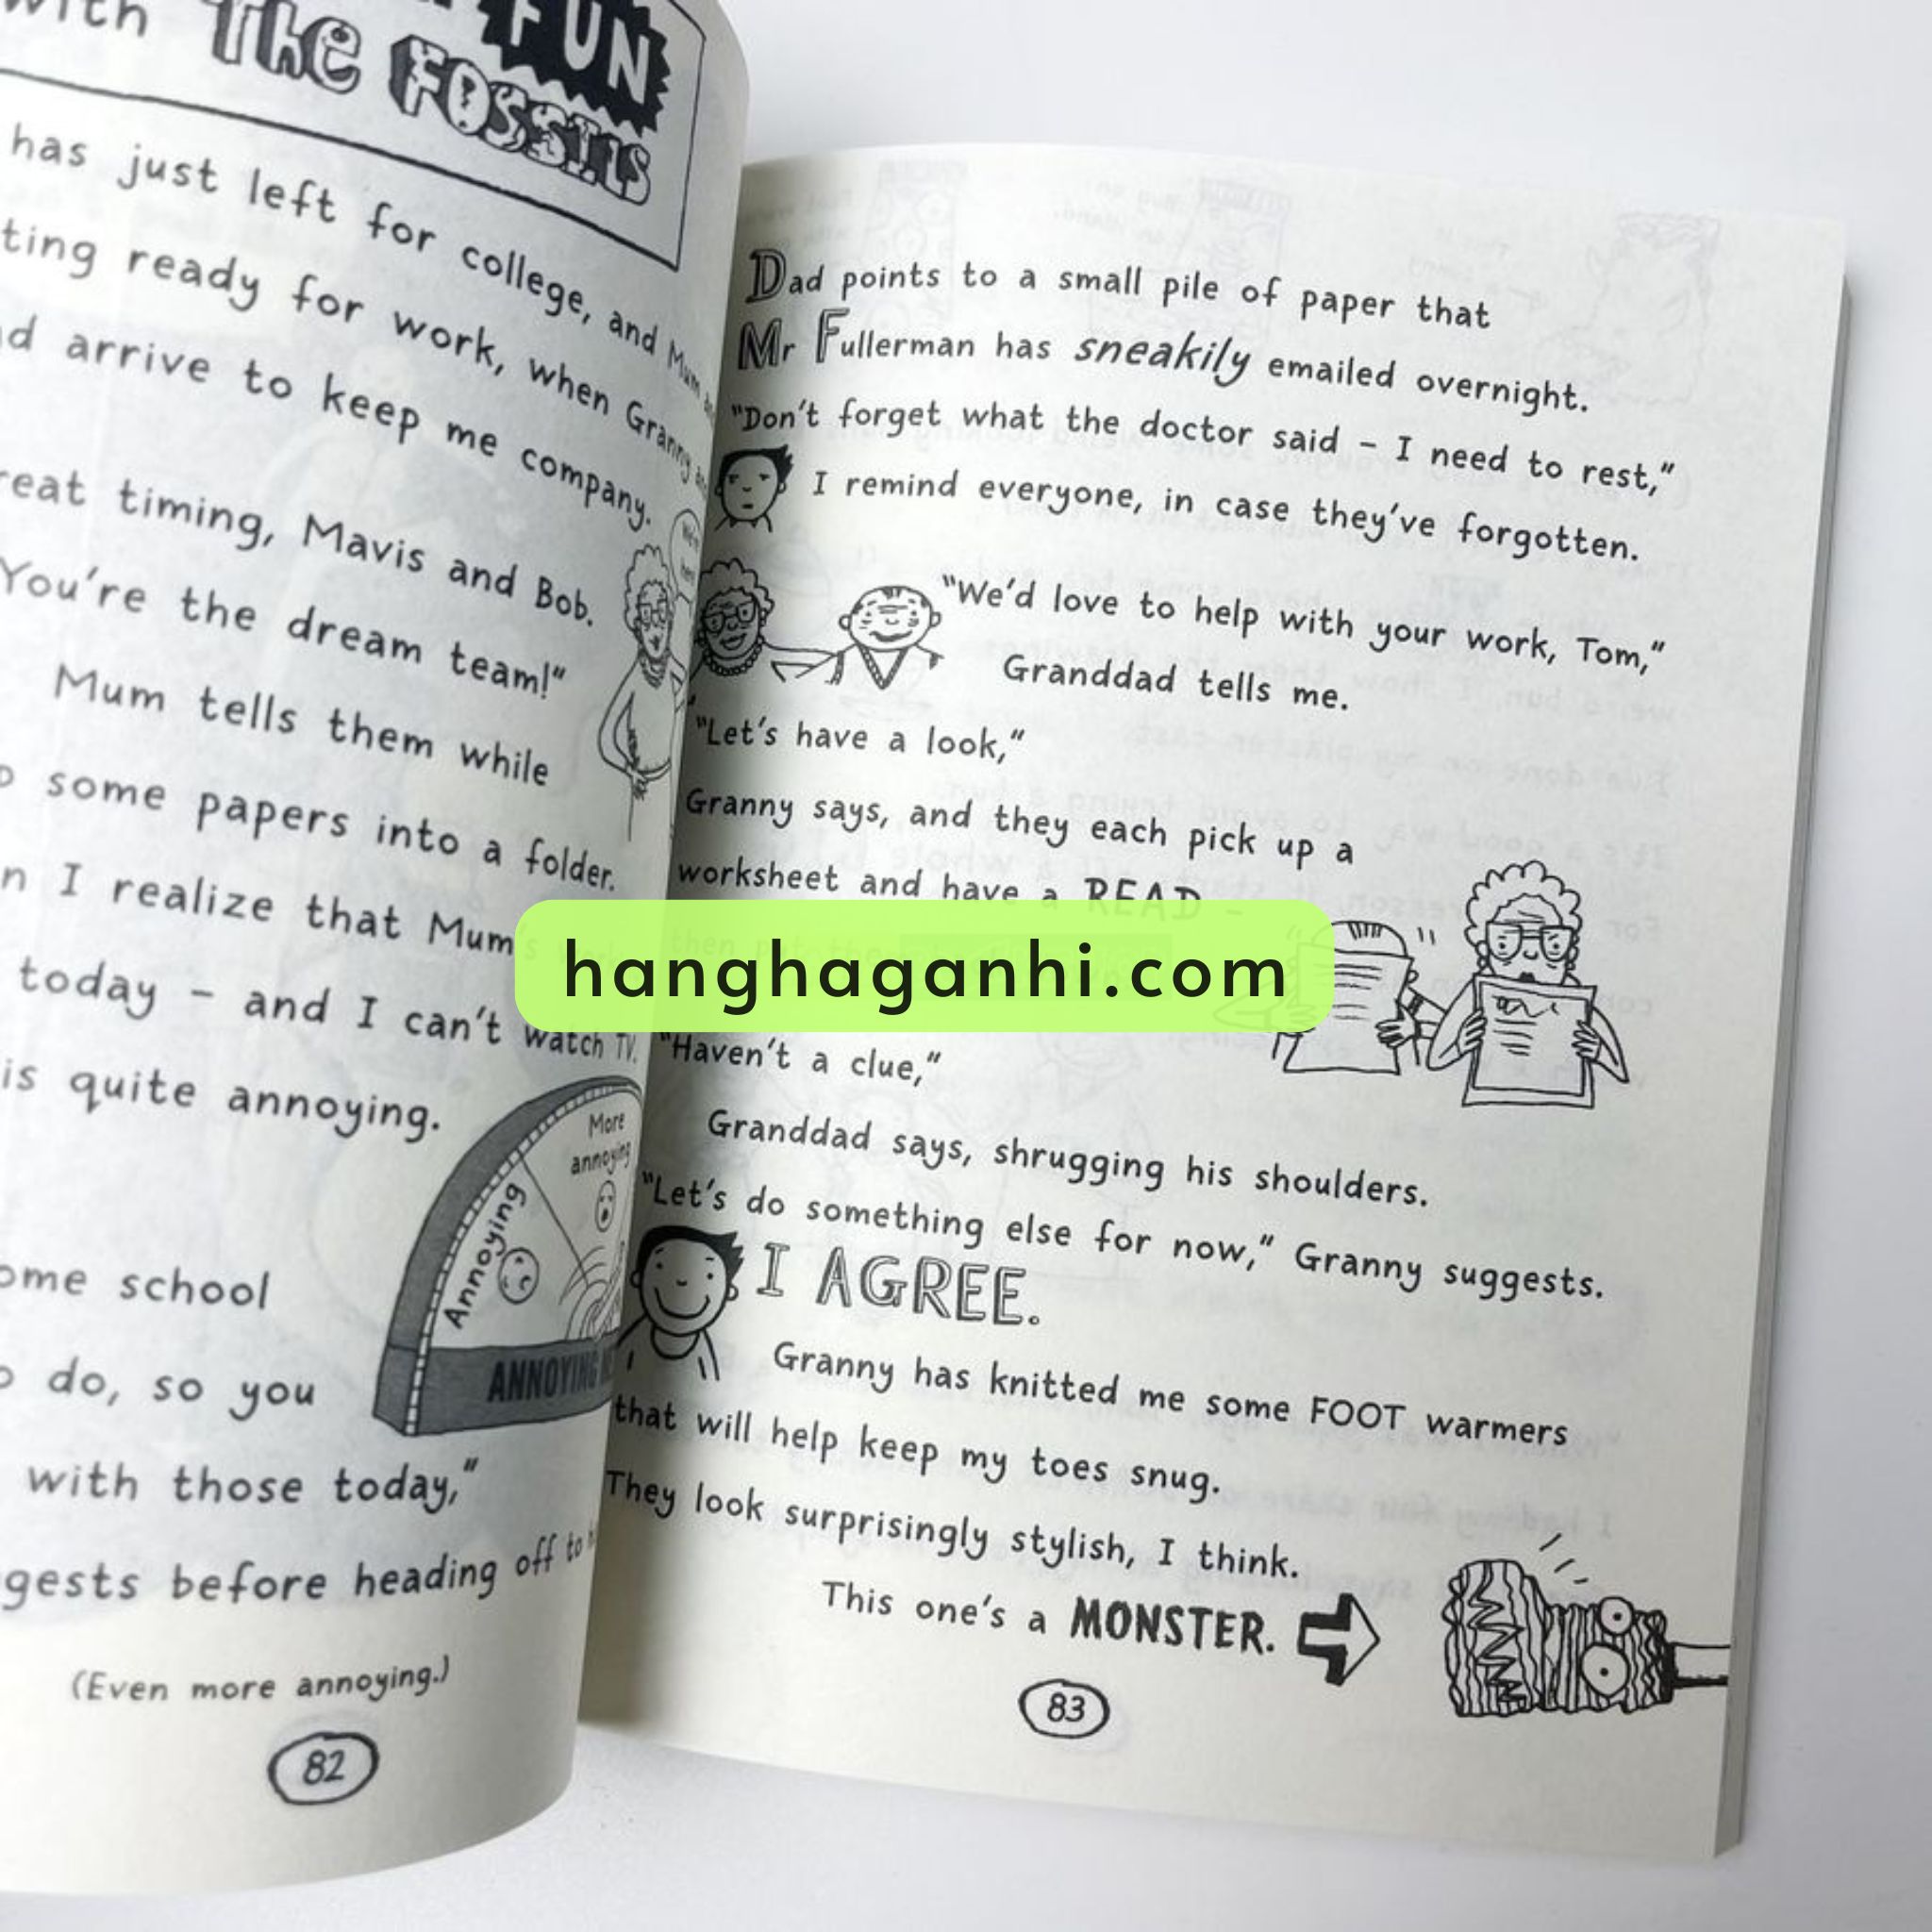 with The FUN
FOSSILS
has just left for college, and Mum
ting ready for work, when Granny and
d arrive to keep me company.
reat timing, Mavis and Bob.
You're the dream team!"
Mum tells them while
some papers into a folder.
n I realize that Mum's
today – and I can't watch TV.
is quite annoying.
More
annoying
Annoying
ANNOYING
ome school
o do, so you
with those today,"
gests before heading off to
(Even more annoying.)
82
Dad points to a small pile of paper that
Mr Fullerman has sneakily emailed overnight.
"Don't forget what the doctor said – I need to rest,"
I remind everyone, in case they've forgotten.
"We'd love to help with your work, Tom,"
Granddad tells me.
"Let's have a look,"
Granny says, and they each pick up a
worksheet and have a READ –
hanghaganhi.com
"Haven't a clue,"
Granddad says, shrugging his shoulders.
"Let's do something else for now," Granny suggests.
I AGREE.
Granny has knitted me some FOOT warmers
that will help keep my toes snug.
They look surprisingly stylish, I think.
This one's a MONSTER.
83